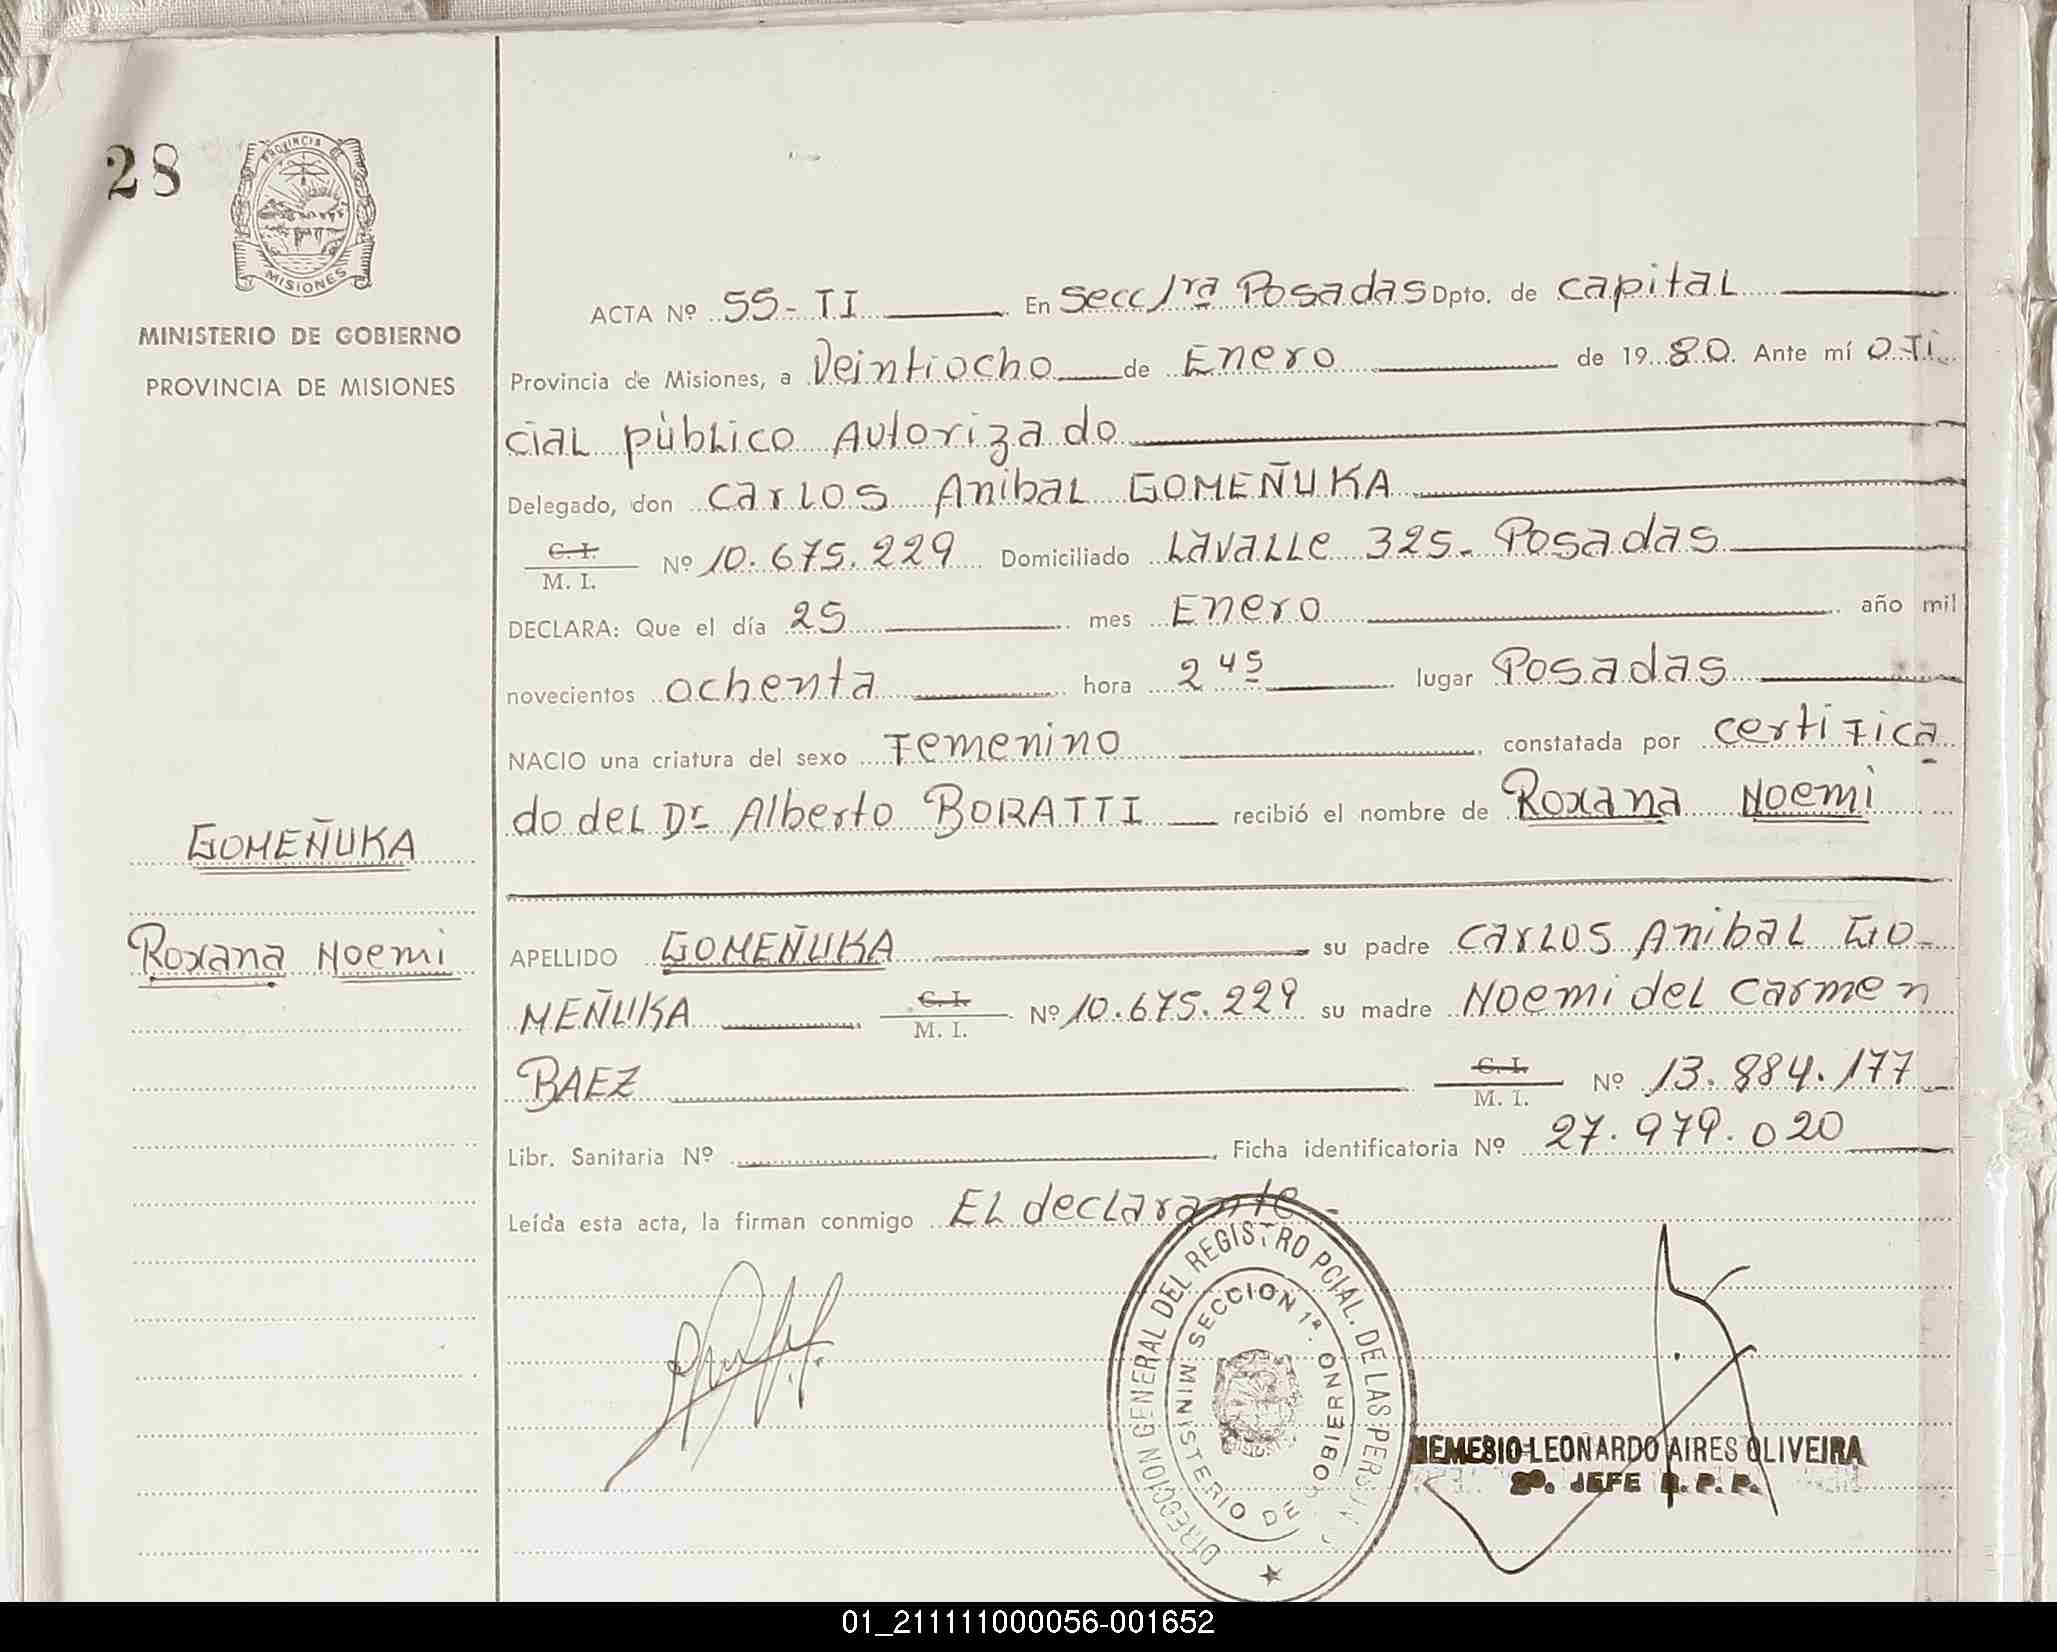 28
PROVINCIA DE
MISIONES
MINISTERIO DE GOBIERNO
PROVINCIA DE MISIONES
ACTA Nº 55-TI En Secc 1ra Posadas Dpto. de capital
Provincia de Misiones, a Veintiocho de Enero de 1980. Ante mí ofi
cial público Autorizado
Delegado, don Carlos Anibal GOMEÑUKA
C. I.
M. I. Nº 10.675.229 Domiciliado Lavalle 325- Posadas
DECLARA: Que el día 25 mes Enero año mil
novecientos ochenta hora 2 45 lugar Posadas
NACIO una criatura del sexo Femenino constatada por certifica
do del Dr Alberto BORATTI recibió el nombre de Roxana Noemi
GOMEÑUKA
Roxana Noemi
APELLIDO GOMEÑUKA su padre Carlos Anibal GO-
MEÑUKA C. I.
M. I. Nº 10.675.229 su madre Noemi del Carmen
BAEZ C. I.
M. I. Nº 13.884.177
Libr. Sanitaria Nº Ficha identificatoria Nº 27.979.020
Leída esta acta, la firman conmigo El declarante-
DIRECCION GENERAL DEL REGISTRO PCIAL. DE LAS PERSON
SECCION 1ª.
MINISTERIO DE GOBIERNO
NEMESIO LEONARDO AIRES OLIVEIRA
JEFE R. P. P.
01_211111000056-001652